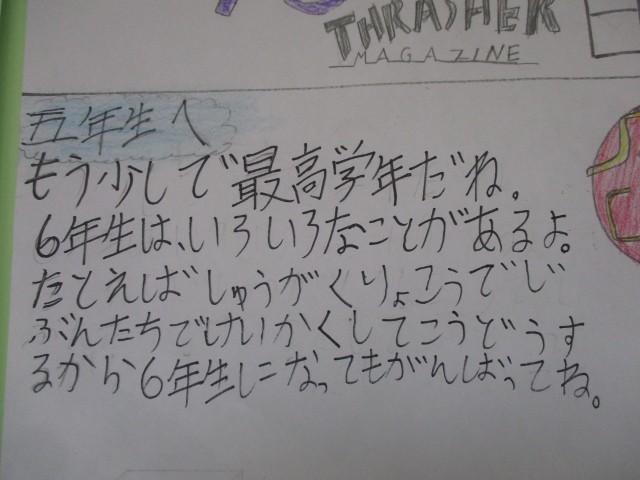 THRASHER
MAGAZINE
五年生へ
もう少しで最高学年だね。
6年生は、いろいろなことがあるよ。
たとえばしゅうがくりょこうでじ
ぶんたちでけいかくしてこうどうす
るから6年生になってもがんばってね。